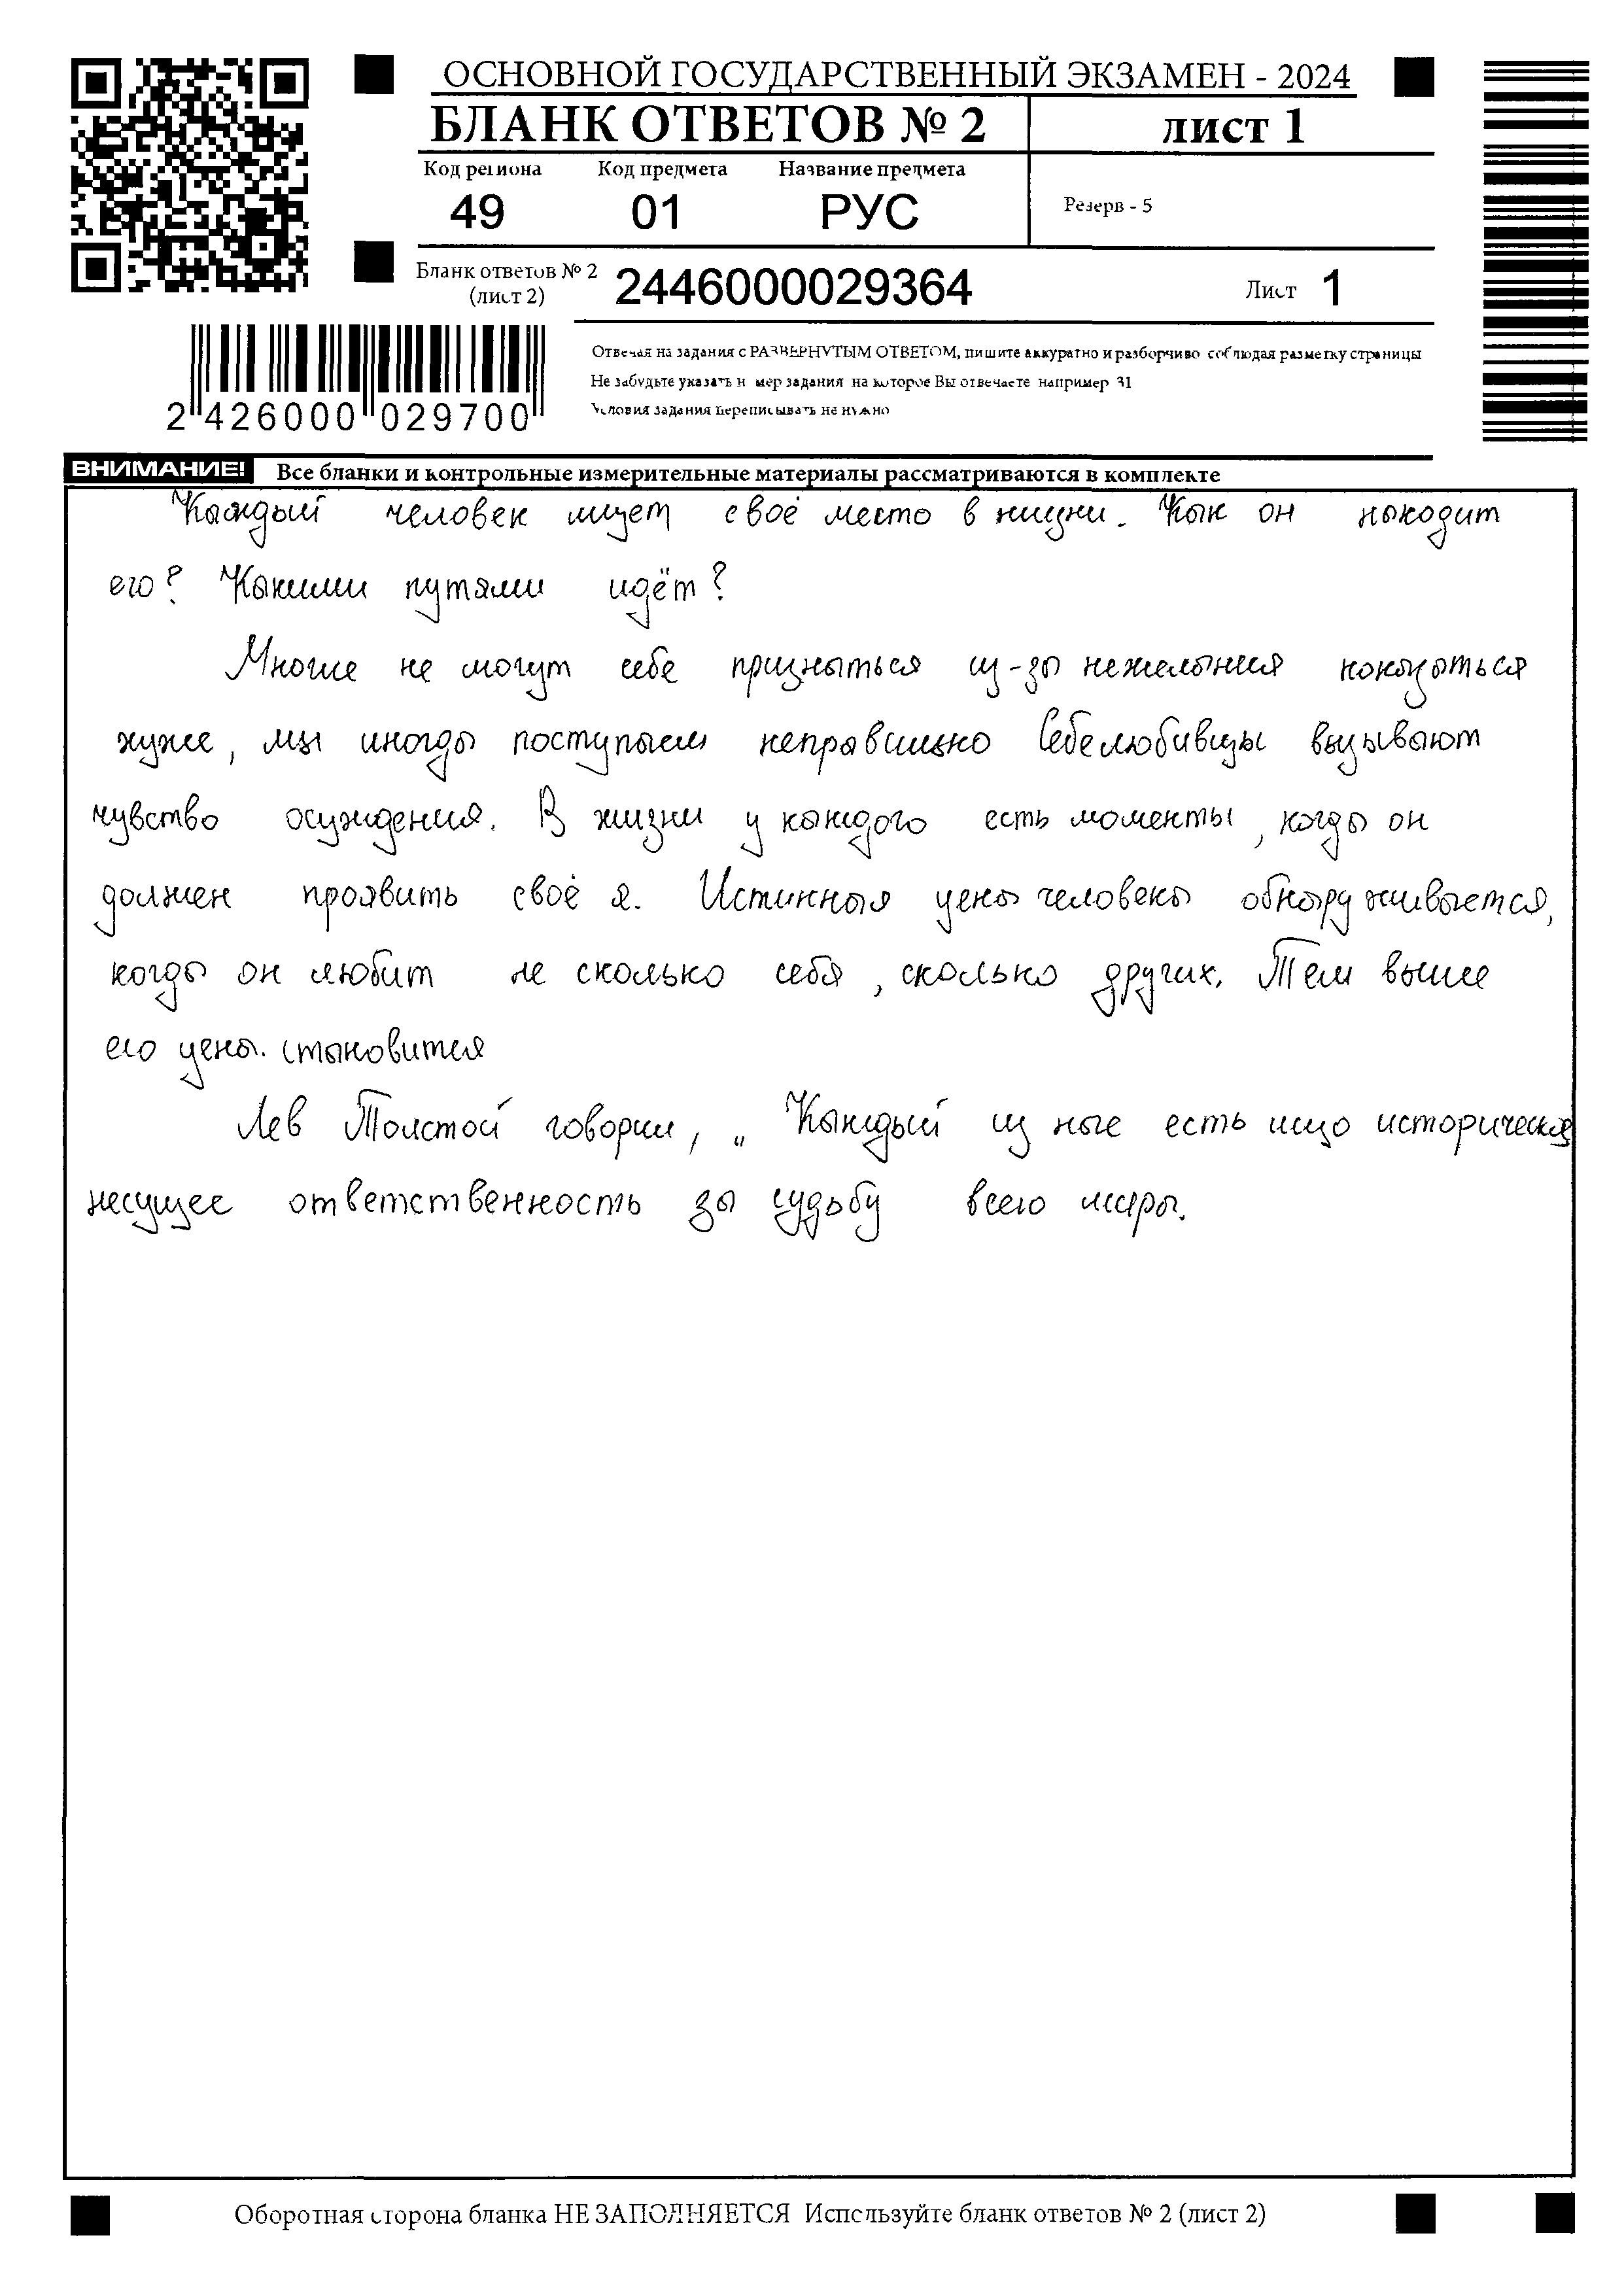 ОСНОВНОЙ ГОСУДАРСТВЕННЫЙ ЭКЗАМЕН - 2024
БЛАНК ОТВЕТОВ № 2
лист 1
Код региона Код предмета Название предмета
49 01 РУС
Резерв - 5
Бланк ответов № 2
(лист 2)
2446000029364
Лист 1
Отвечая на задания с РАЗВЕРНУТЫМ ОТВЕТОМ, пишите аккуратно и разборчиво соблюдая разметку страницы
Не забудьте указать номер задания на которое Вы отвечаете например 31
Условия задания переписывать не нужно
2 426000 029700
ВНИМАНИЕ! Все бланки и контрольные измерительные материалы рассматриваются в комплекте
Каждый человек ищет своё место в жизни. Как он находит
его? Какими путями идёт?
Многие не могут себе признаться из-за нежелания показаться
хуже, мы иногда поступаем неправильно Себелюбивцы вызывают
чувство осуждения. В жизни у каждого есть моменты, когда он
должен проявить своё я. Истинная цена человека обнаруживается,
когда он любит не сколько себя, сколько других. Тем выше
его цена. становится
Лев Толстой говорил, „Каждый из нас есть лицо историческое
несущее ответственность за судьбу всего мира.
Оборотная сторона бланка НЕ ЗАПОЛНЯЕТСЯ Используйте бланк ответов № 2 (лист 2)